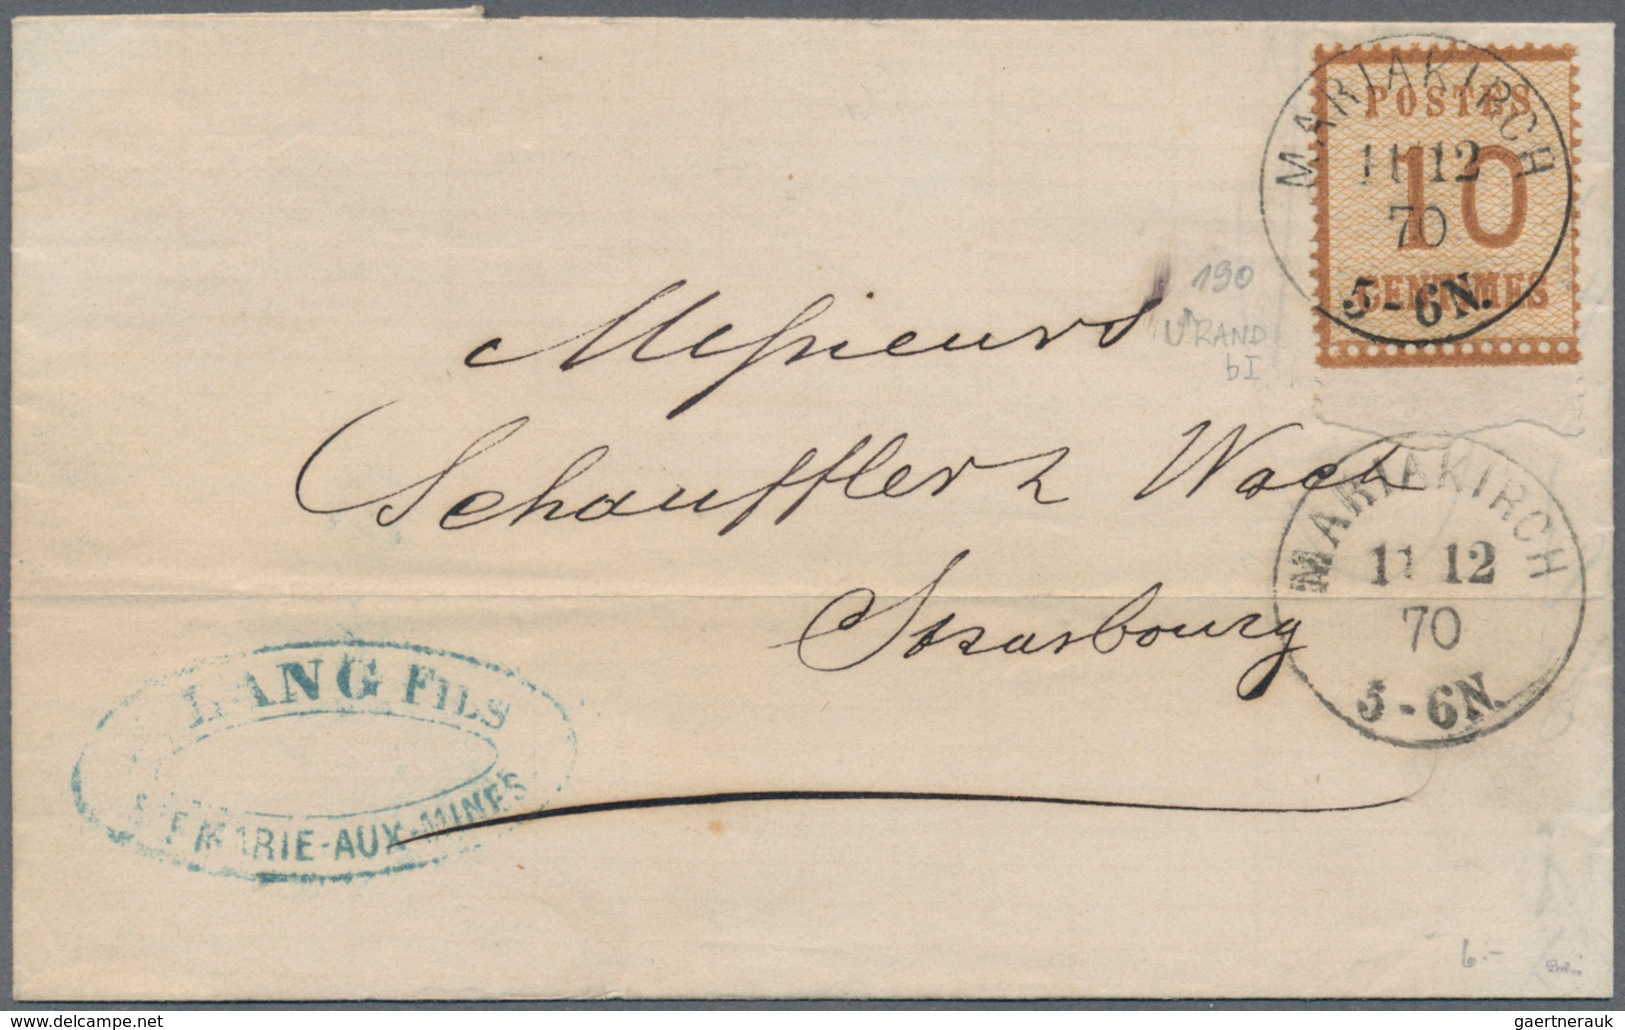 POSTES
10
CENTIMES
MARIAKIRCH
11 12
70
5-6N.
190
U'RAND
bI
Messieurs
Schauffler & Wach
Strasbourg
MARIAKIRCH
11 12
70
5-6N.
LANG FILS
STE MARIE-AUX-MINES
6.-
www.delcampe.net
gaertnerauk